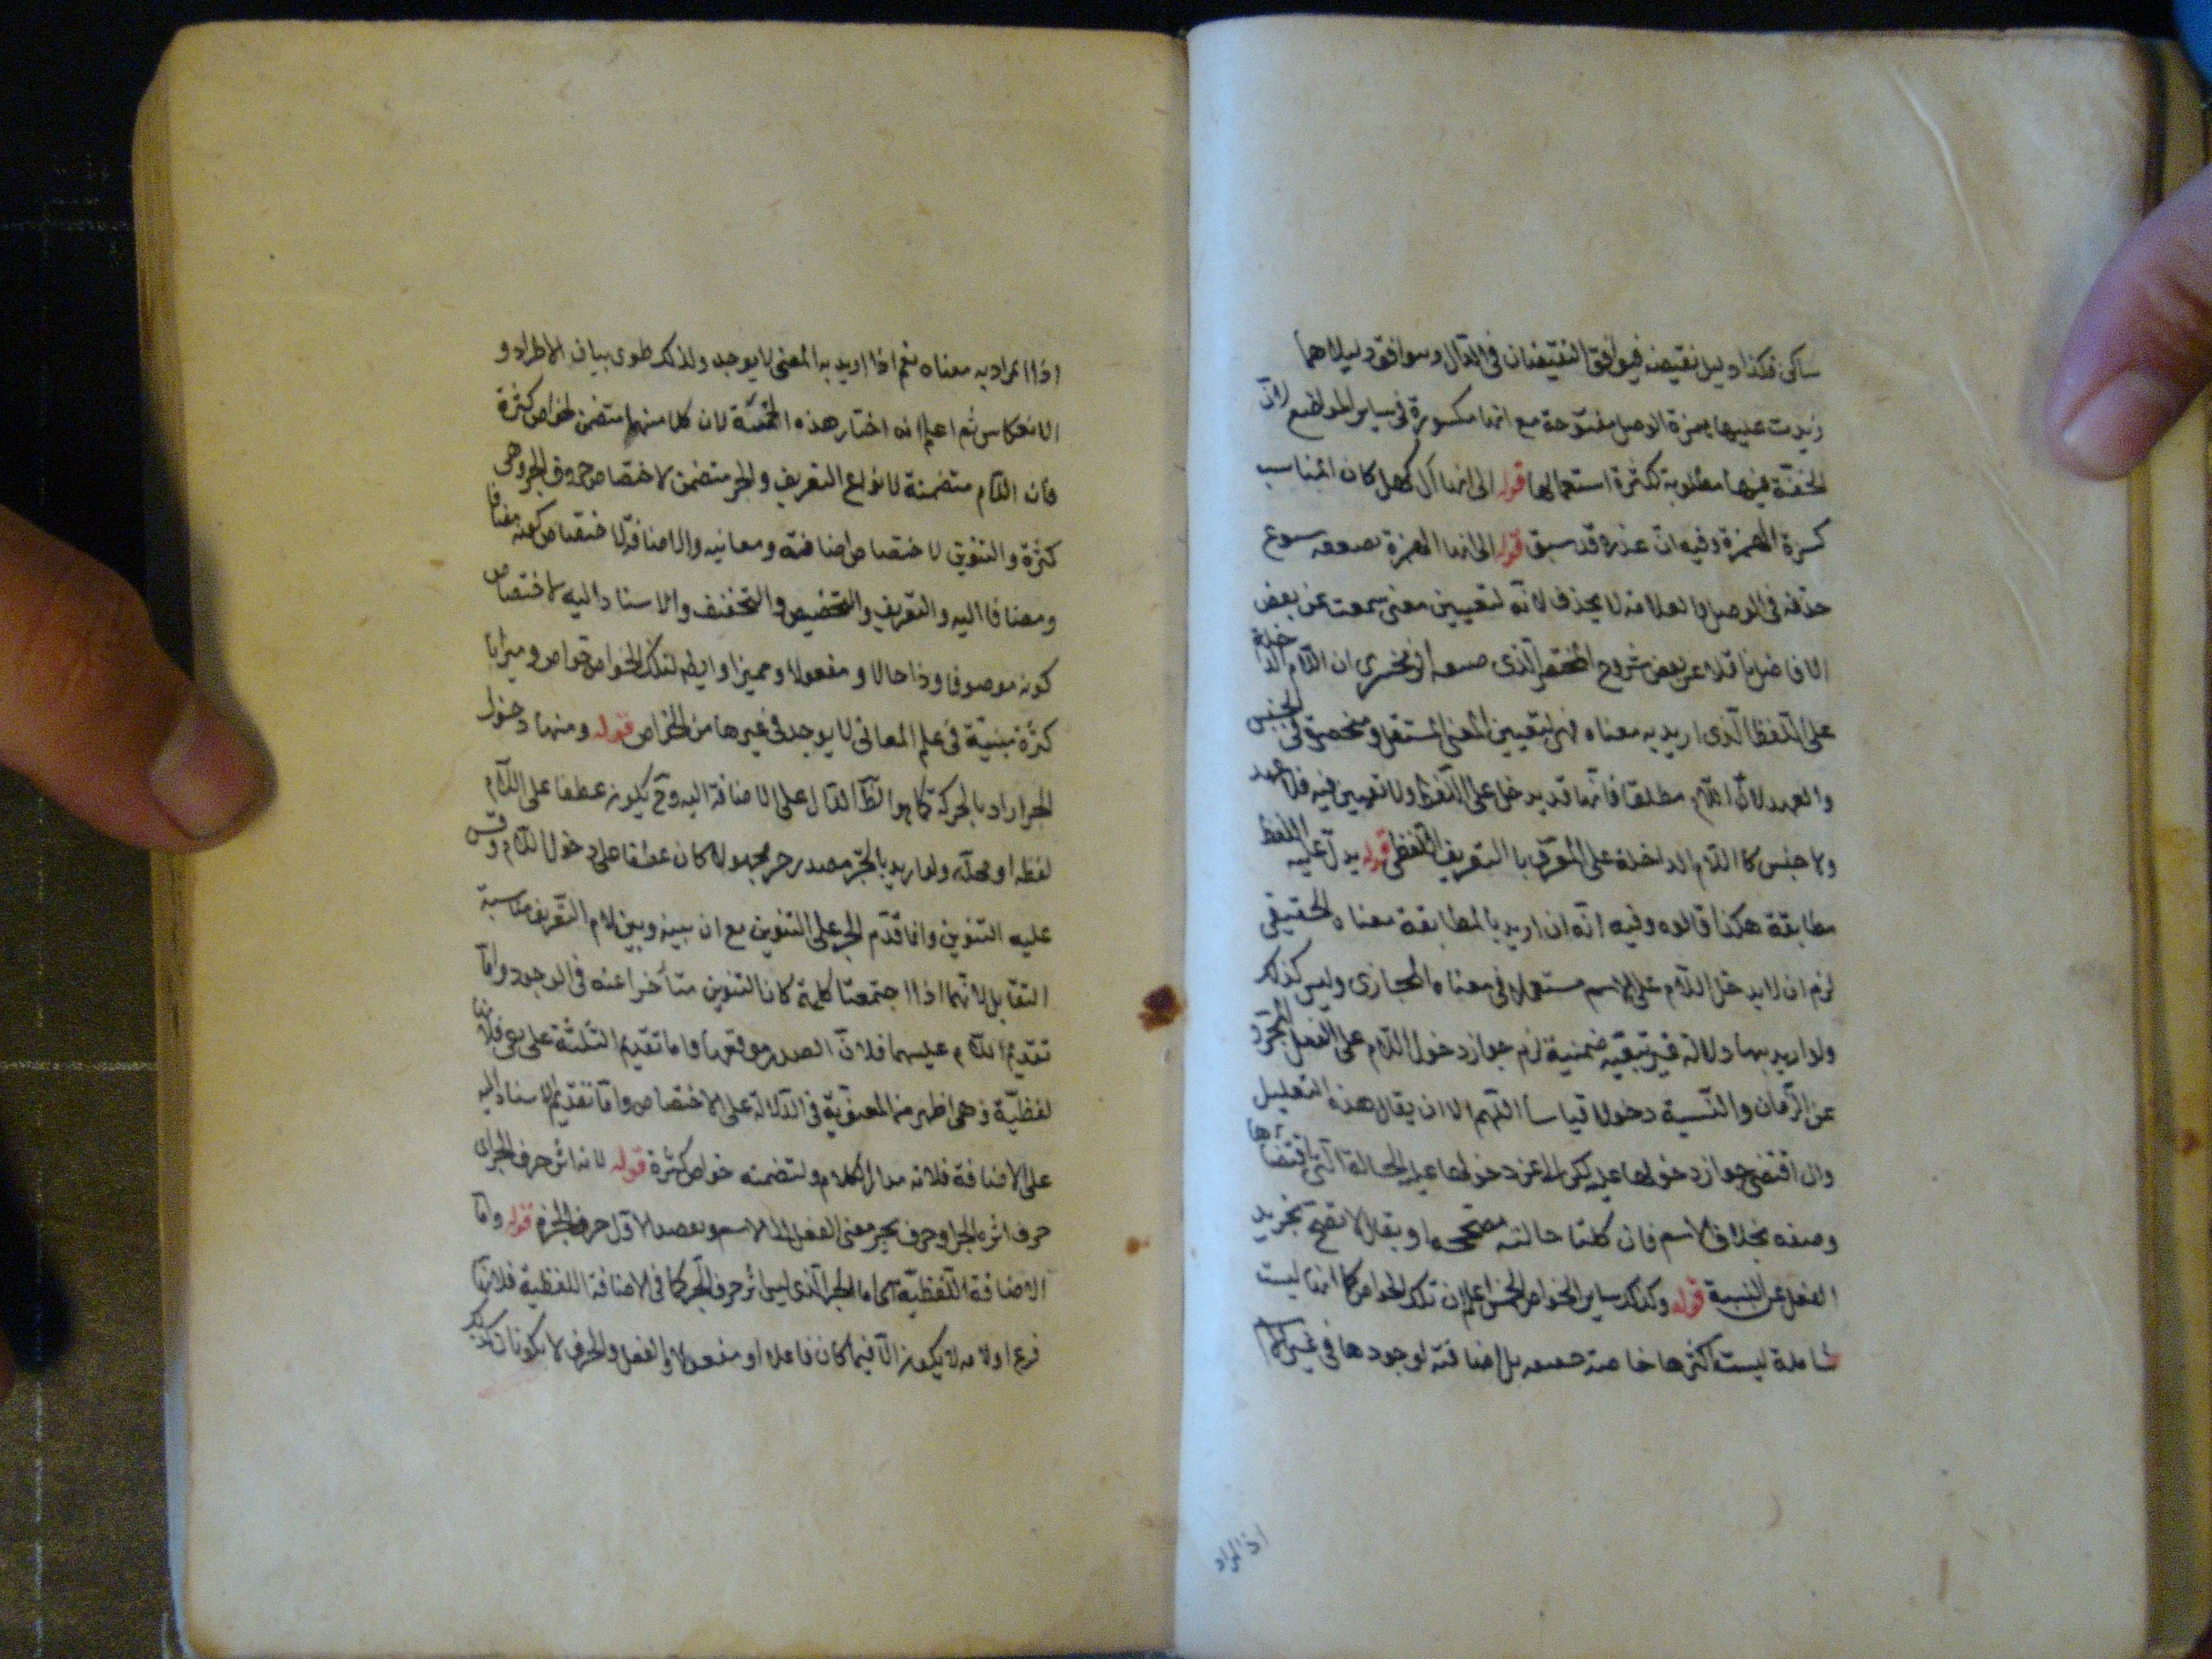 ساكن فكذا دليل نقيضه فيوافق النقيضان في الدال وسوافق دليلاهما
زيدت عليها همزة الوصل مفتوحة مع انها مكسورة في ساير المواضع لان
الخفة فيها مطلوبة لكثرة استعمالها قوله الى انها ال كهل كان المناسب
كسرة الهمزة وفيه ان عذره قد سبق قوله الى انها الهمزة
حذفه في الوصل والعلامة لا يحذف لانه لتعيين معنى سمعت عن بعض
الافاضل ناقلا عن بعض شروح المختصر الذى الزمخشرى ان اللام الداخلة
على اللفظ الذى اريد به معناه فهى لتعيين المعنى المستقل ومنحصرة في الجنس
والعهد لان اللام مطلقا فانها قد يدخل على اللفظ ولا تعيين فيه فلا عهد
ولا جنس كا اللام الداخلة على المعرف با التعريف اللفظى قوله يدل عليه اللفظ
مطابقة هكذا قالوه وفيه انه ان اريد بالمطابقة معناه الحقيقى
لزم ان لا يدخل اللام على الاسم مستعملا في معناه المجازى وليس كذلك
ولو اريد بها دلالة غير تبعية ضمنية لزم جواز دخول اللام على الفعل المجرد
عن الزمان والنسبة دخولا قياسا اللهم الا ان يقال هذه التعليل
وان اقتضى جواز دخولها عليه لكن دخولها عليه الحالة التى اقتضاها
وصفه بخلاف الاسم فان كلتا حالتيه مصححه او يقال لا تصح تجريد
الفعل عن النسبة قوله وكذلك ساير الخواص الخمس اعلم ان تلك الخواص كما انها ليست
شاملة ليست اكثرها خاصة بل اضافية لوجودها في غير الكلم
اذ المراد
اذا المراد به معناه نعم اذا اريد به المعنى لا يوجد ولذلك طوى بيان الاطراد و
الانعكاس ثم اعلم انه اختار هذه الخمسة لان كلا منها متضمن لخواص كثرة
فان اللام متضمنة لانواع التعريف والجر متضمن لاختصاص حروف الجر وهى
كثرة والتنوين لاختصاص اضافته ومعانيه والاضافة لاختصاص كونه مضافا
ومضافا اليه والتعريف والتخصيص والتخفيف والاسناد اليه لاختصاص
كونه موصوفا وذا حال او مفعولا ومميزا وايضا لتلك الخواص خواص ومزايا
كثرة مبنية في علم المعانى لا يوجد في غيرها من الخواص قوله ومنها دخول
الجر اراد بالجر كة كما هو الظ الدال على الاضافة اليه وح يكون عطفا على اللام
لفظه او محله ولو اريد بالجر مصدر جر مجهولا كان عطفا على دخول اللام وقس
عليه التنوين وانما قدم الجر على التنوين مع ان بينه وبين لام التعريف مناسبة
التقابل لانهما اذا اجتمعتا كلمة كان التنوين متأخرا عنه في الوجود واما
تقديم اللام عليهما فلان الصدر موقعها واما تقديم الثلثة على بقى فلانها
لفظية وهى اظهر من المعنوية في الدلالة على الاختصاص واما تقديم الاسناد اليه
على الاضافة فلانه مدار الكلام ولتضمنه خواص كثرة قوله لانه اثر حرف الجر اى
حرف اثره الجر او حرف يجر معنى الفعل الى الاسم ويعضد الاول حرف الجزم قوله واما
الاضافة اللفظية اى اما الجر الذى ليس اثر حرف الجر كما في الاضافة اللفظية فلانها
فرع اولا مه لا يكون الا فيما كان فاعلا او مفعولا والفعل والحرف لا يكونا كذلك